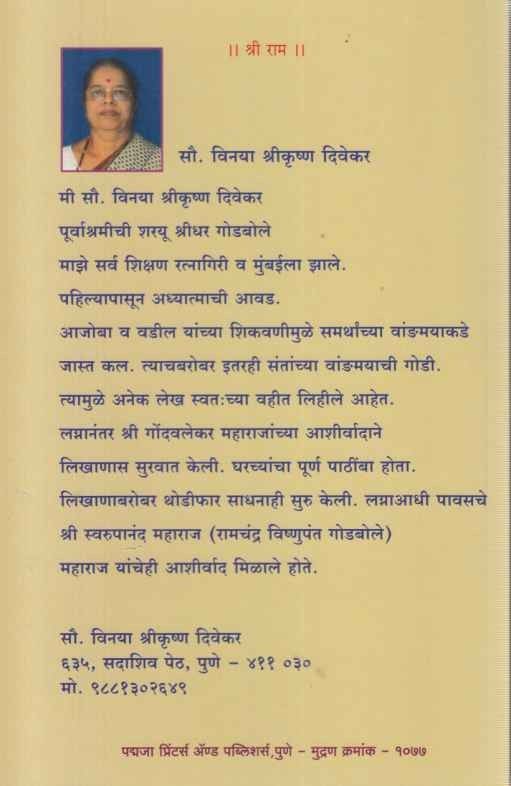 ।। श्री राम ।।
सौ. विनया श्रीकृष्ण दिवेकर
मी सौ. विनया श्रीकृष्ण दिवेकर
पूर्वाश्रमीची शरयू श्रीधर गोडबोले
माझे सर्व शिक्षण रत्नागिरी व मुंबईला झाले.
पहिल्यापासून अध्यात्माची आवड.
आजोबा व वडील यांच्या शिकवणीमुळे समर्थांच्या वांङमयाकडे
जास्त कल. त्याचबरोबर इतरही संतांच्या वांङमयाची गोडी.
त्यामुळे अनेक लेख स्वतःच्या वहीत लिहीले आहेत.
लग्नानंतर श्री गोंदवलेकर महाराजांच्या आशीर्वादाने
लिखाणास सुरवात केली. घरच्यांचा पूर्ण पाठींबा होता.
लिखाणाबरोबर थोडीफार साधनाही सुरु केली. लग्नाआधी पावसचे
श्री स्वरुपानंद महाराज (रामचंद्र विष्णुपंत गोडबोले)
महाराज यांचेही आशीर्वाद मिळाले होते.
सौ. विनया श्रीकृष्ण दिवेकर
६३५, सदाशिव पेठ, पुणे – ४११ ०३०
मो. ९८८१३०२६४९
पद्मजा प्रिंटर्स ॲण्ड पब्लिशर्स,पुणे – मुद्रण क्रमांक – १०७७